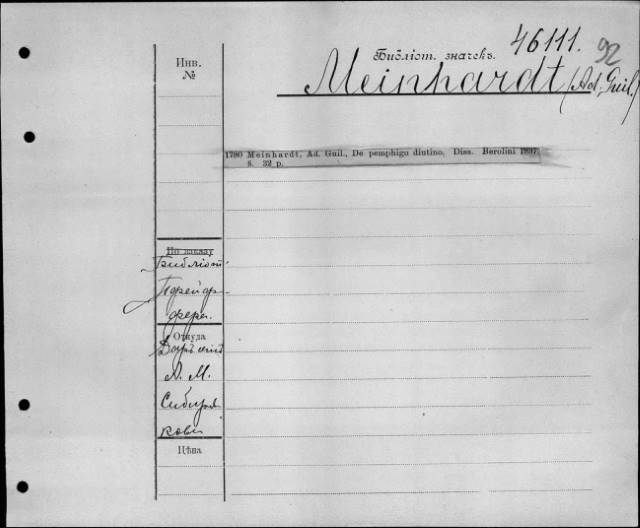 46111.
92
Инв.
№
Библіот. значекъ.
Meinhardt (Ad. Guil.)
1780 Meinhardt, Ad. Guil., De pemphigo diutino. Diss. Berolini 1837.
8. 32 p.
По заказу
Библіот.
Пфейф-
фера.
Откуда
Даръ отъ
А. М.
Сибиря
кова
Цѣна